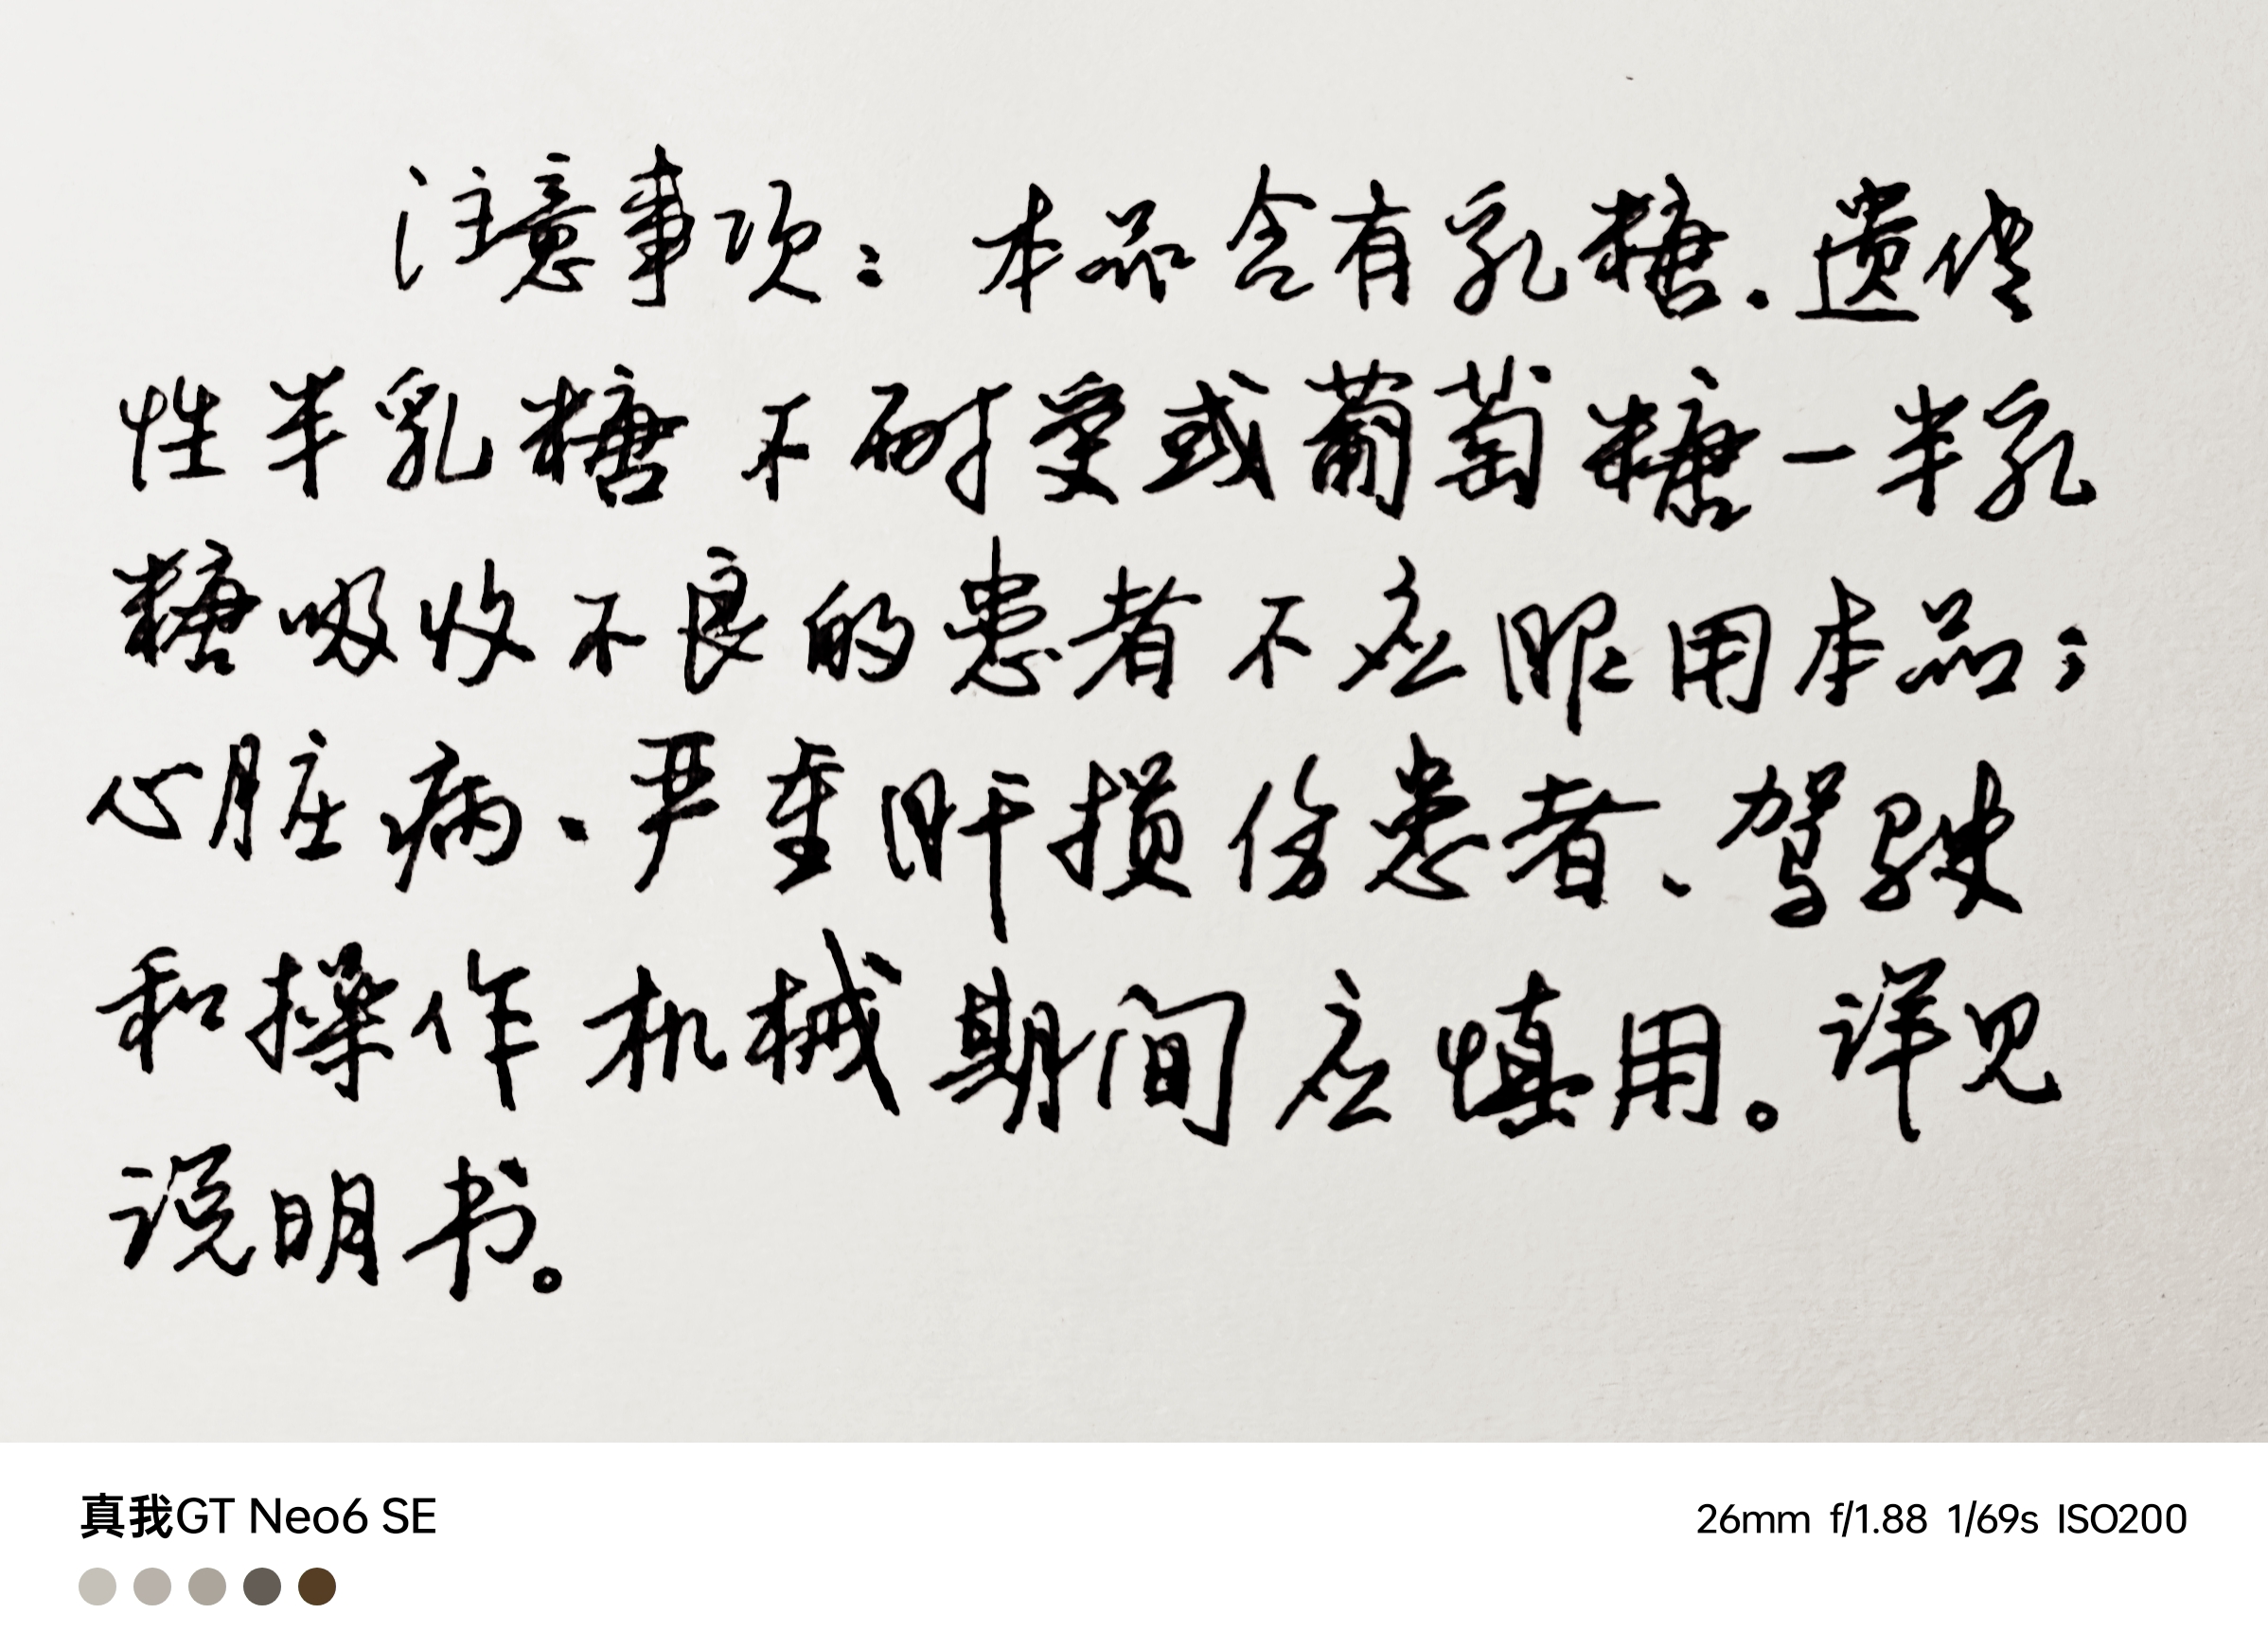 注意事项：本品含有乳糖.遗传
性半乳糖不耐受或葡萄糖一半乳
糖吸收不良的患者不应服用本品；
心脏病、严重肝损伤患者、驾驶
和操作机械期间应慎用。详见
说明书。
真我GT Neo6 SE
26mm f/1.88 1/69s ISO200